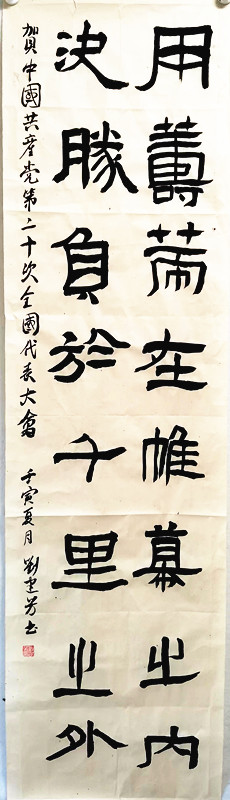 用籌策在帷幕之内
決勝負於千里之外
賀中國共産党第二十次全國代表大會 壬寅夏月 劉建芳书